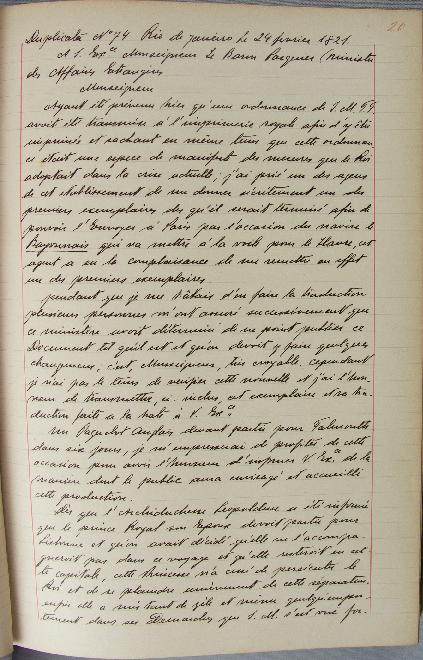 20
Duplicata N° 74 Rio de janeiro le 24 fevrier 1821
A S. Exce Monseigneur Le Baron Pasquier (ministre
des Affaires Etrangeres
Monseigneur
Ayant été prévenu hier qu'une ordonnance de S. M. T. F.
avait été transmise à l'imprimerie royale afin d'y être
imprimée et sachant en même tems que cette ordonnan
ce était une espece de manifeste des mesures que le Roi
adoptait dans la crise actuelle; j'ai prié un des agens
de cet etablissement de me donner secrètement un des
premiers exemplaires dès qu'il serait terminé afin de
pouvoir l'Envoyer à Paris par l'occasion du navire le
Bayonnais qui va mettre à la voile pour le Havre, cet
agent a eu la complaisance de me remettre en effet
un des premiers exemplaires.
pendant que je me hâtais d'en faire la traduction
plusieurs personnes m'ont assuré successivement que
ce ministère avait déterminé de ne point publier ce
Document tel qu'il est et qu'on devoit y faire quelques
changemens, c'est, Monseigneur, très croyable, cependant
je n'ai pas le tems de verifier cette nouvelle et j'ai l'hon
neur de transmettre, ci inclus, cet exemplaire et sa tra
duction faite à la hate à V. Exce
Un Paquebot Anglais devant partir pour Falmouth
dans six jours, je m'empresserai de profiter de cette
occasion pour avoir l'honneur d'informer V Exce de la
maniere dont le public aura envisagé et accueilli
cette production.
Dès que l'Archiduchesse Leopoldine a été informé
que le prince Royal son Epoux devoit partir pour
Lisbonne et qu'on avait décidé qu'elle ne l'accompa
gneroit pas dans ce voyage et qu'elle resteroit en cet
te capitale, cette Princesse n'a cessé de persécuter le
Roi et de se plaindre amèrement de cette séparation.
enfin elle a mis tant de zèle et même quelqu'empor-
tement dans ses Demarches que S. M. s'est vue for-